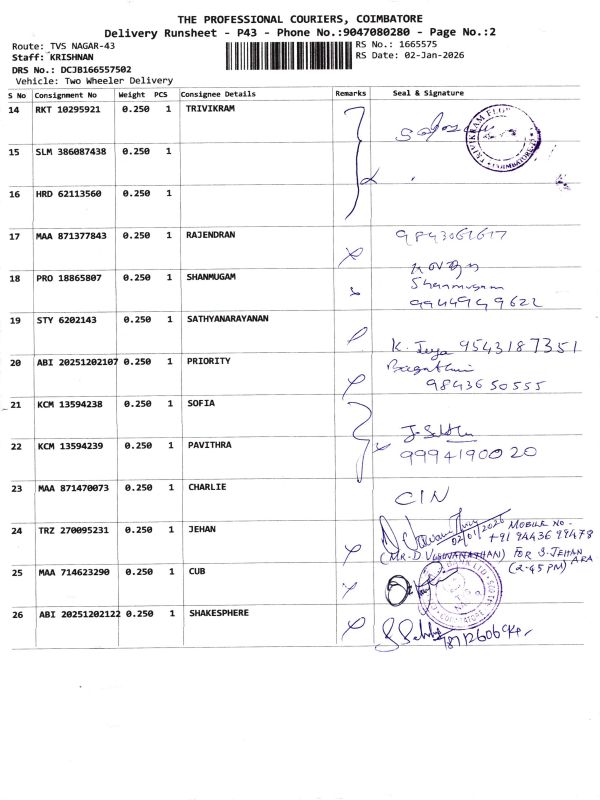 THE PROFESSIONAL COURIERS, COIMBATORE
Delivery Runsheet - P43 - Phone No.:9047080280 - Page No.:2
Route: TVS NAGAR-43
RS No.: 1665575
Staff: KRISHNAN
RS Date: 02-Jan-2026
DRS No.: DCJB166557502
Vehicle: Two Wheeler Delivery
S No Consignment No Weight PCS Consignee Details Remarks Seal & Signature
14 RKT 10295921 0.250 1 TRIVIKRAM
15 SLM 386087438 0.250 1
16 HRD 62113560 0.250 1
17 MAA 871377843 0.250 1 RAJENDRAN 9843061617
18 PRO 18865807 0.250 1 SHANMUGAM
Shanmugam
9944949622
19 STY 6202143 0.250 1 SATHYANARAYANAN
K. Jeya 9543187351
20 ABI 20251202107 0.250 1 PRIORITY
9843650555
21 KCM 13594238 0.250 1 SOFIA
22 KCM 13594239 0.250 1 PAVITHRA 9994190020
23 MAA 871470073 0.250 1 CHARLIE CIN
24 TRZ 270095231 0.250 1 JEHAN
02/01/2026 MOBILE NO -
+91 94436 99478
(MR-D VISWANATHAN) FOR J-JEHAN ARA
(2-45 PM)
25 MAA 714623290 0.250 1 CUB
26 ABI 20251202122 0.250 1 SHAKESPHERE